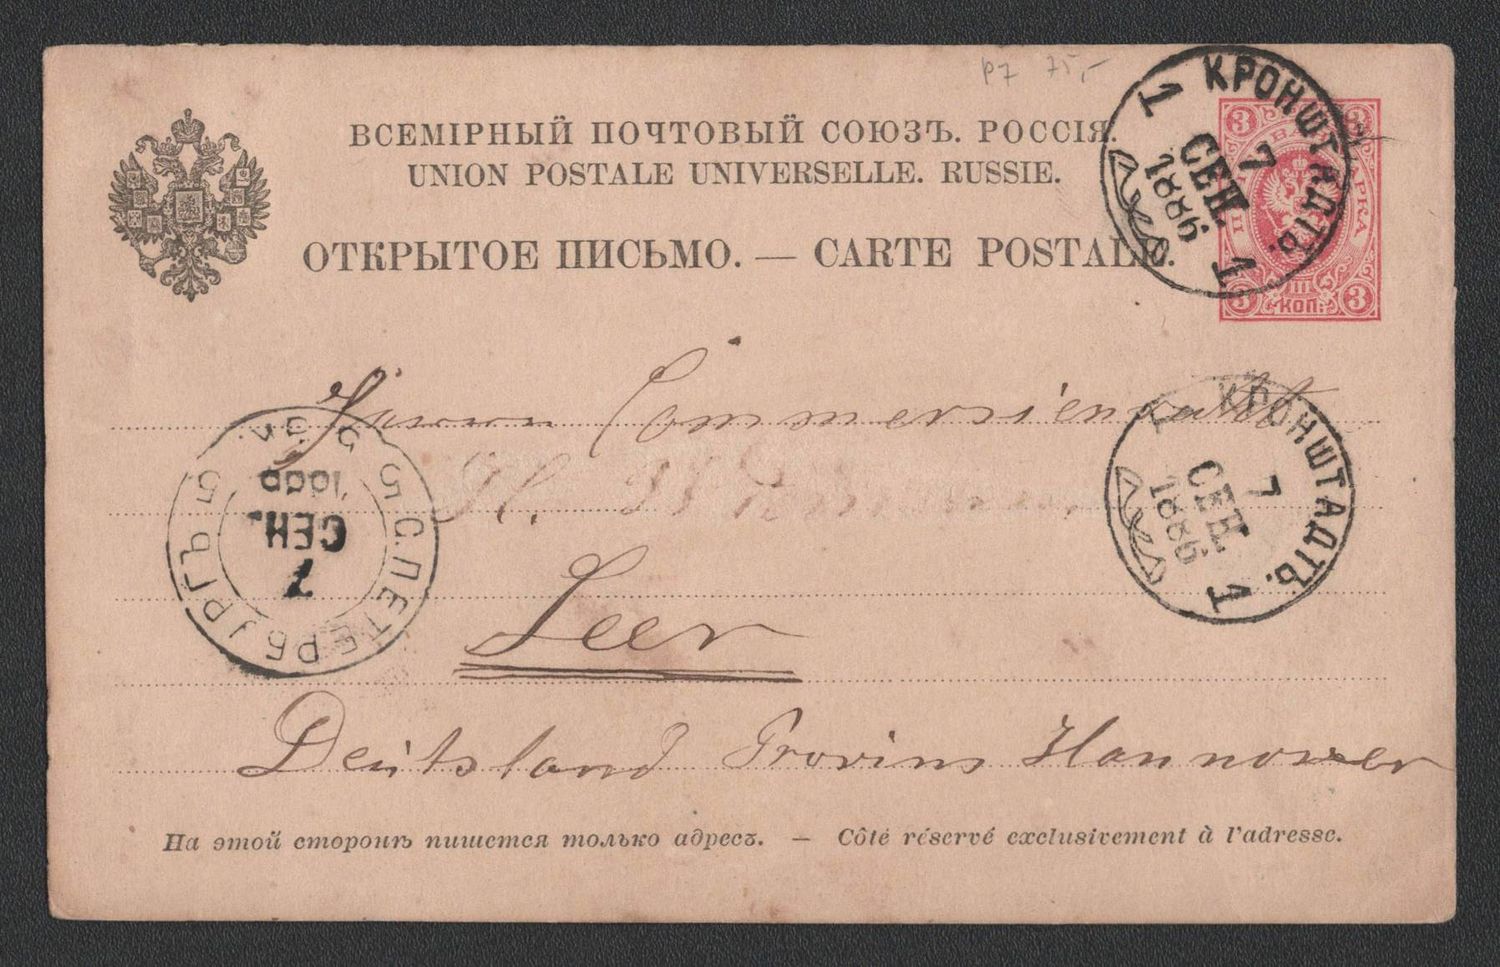 P7 75,-
ВСЕМІРНЫЙ ПОЧТОВЫЙ СОЮЗЪ. РОССІЯ.
UNION POSTALE UNIVERSELLE. RUSSIE.
ОТКРЫТОЕ ПИСЬМО. — CARTE POSTALE.
КРОНШТАДТЪ.
1
7
СЕН
1886
1
3 3
МАРКА
3 КОП. 3
Commersienratt
H.
Leer
Deutsland Provins Hannover
КРОНШТАДТЪ.
1
7
СЕН
1886
1
С.ПЕТЕРБУРГЪ
7
СЕН.
5 5
На этой сторонѣ пишется только адресъ. — Côté réservé exclusivement à l'adresse.